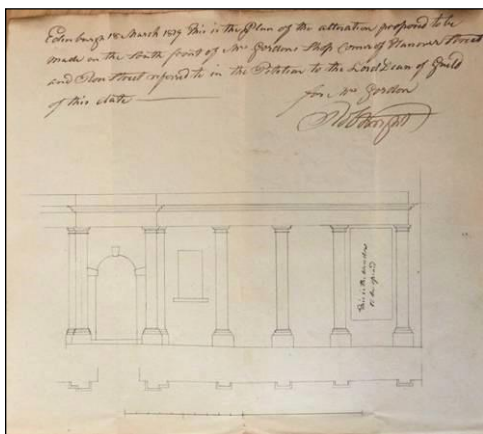 Edinburgh 18 March 1819 This is the Plan of the alteration proposed to be
made in the South front of Mrs Gordons Shop Corner of Hanover Street
and Rose Street refered to in the Petition to the Lord Dean of Guild
of this date
for Mrs Gordon
Robt Wright
This is the window
to be opened